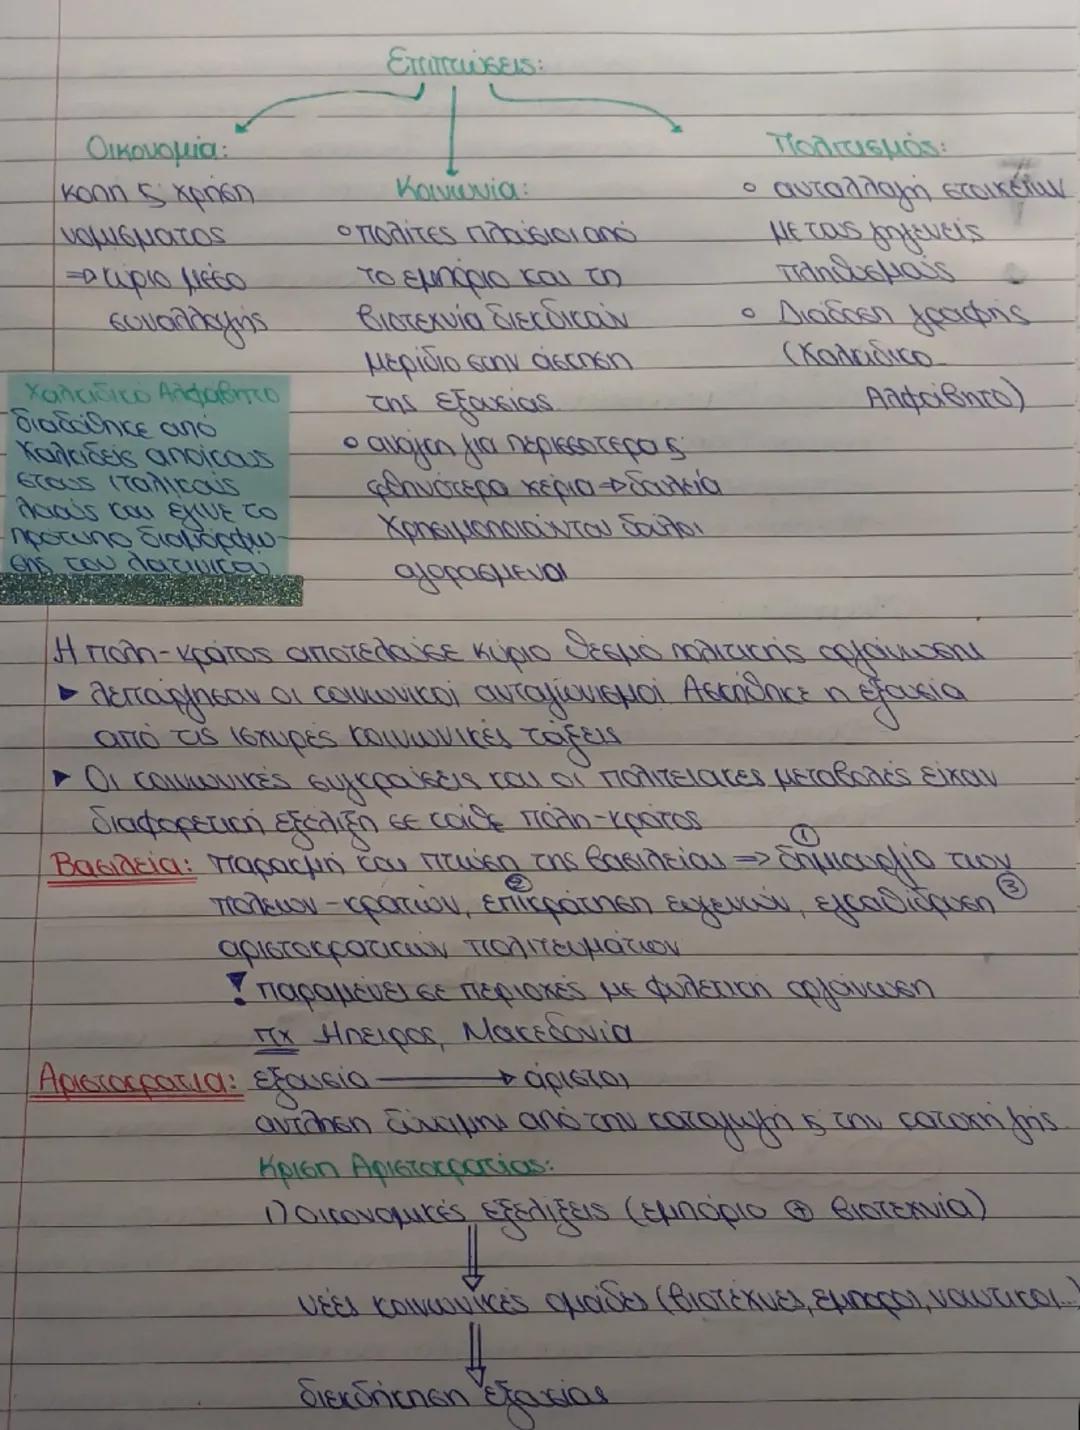 Επιπτώσεις:
Οικονομία:
κοπή ς χρήση
νομίσματος
⇒ κύριο μέσο
συναλλαγής
Κοινωνία:
ο πολίτες πλούσιοι από
το εμπόριο και τη
βιοτεχνία διεκδικούν
μερίδιο στην άσκηση
της εξουσίας
ο ανάγκη για περισσότερα ς
φθηνότερα χέρια → δουλεία
Χρησιμοποιούνται δούλοι
αγορασμένοι
Πολιτισμός:
ο ανταλλαγή στοιχείων
με τους γηγενείς
πληθυσμούς
ο Διάδοση γραφής
(Χαλκιδικό
Αλφάβητο)
Χαλκιδικό Αλφάβητο
διαδόθηκε από
Χαλκιδείς αποίκους
στους ιταλικούς
λαούς και έγινε το
πρότυπο διαμόρφω-
σης του λατινικού
Η πόλη-κράτος αποτελούσε κύριο θεσμό πολιτικής οργάνωσης
▶ λειτούργησαν οι κοινωνικοί ανταγωνισμοί Ασκήθηκε η εξουσία
από τις ισχυρές κοινωνικές τάξεις
▶ Οι κοινωνικές συγκρούσεις και οι πολιτειακές μεταβολές είχαν
διαφορετική εξέλιξη σε κάθε πόλη-κράτος
Βασιλεία: παρακμή και πτώση της βασιλείας ⇒ ① δημιουργία των
πόλεων-κρατών, ② επικράτηση ευγενών, εγκαθίδρυση ③
αριστοκρατικών πολιτευμάτων
! παραμένει σε περιοχές με φυλετική οργάνωση
πχ Ήπειρος, Μακεδονία
Αριστοκρατία: εξουσία → άριστοι
αντληση δύναμης από την καταγωγή ς την κατοχή γης
Κρίση Αριστοκρατίας:
1) οικονομικές εξελίξεις (εμπόριο ⊕ βιοτεχνία)
νέες κοινωνικές ομάδες (βιοτέχνες, έμποροι, ναυτικοι...)
διεκδήκηση εξουσίας